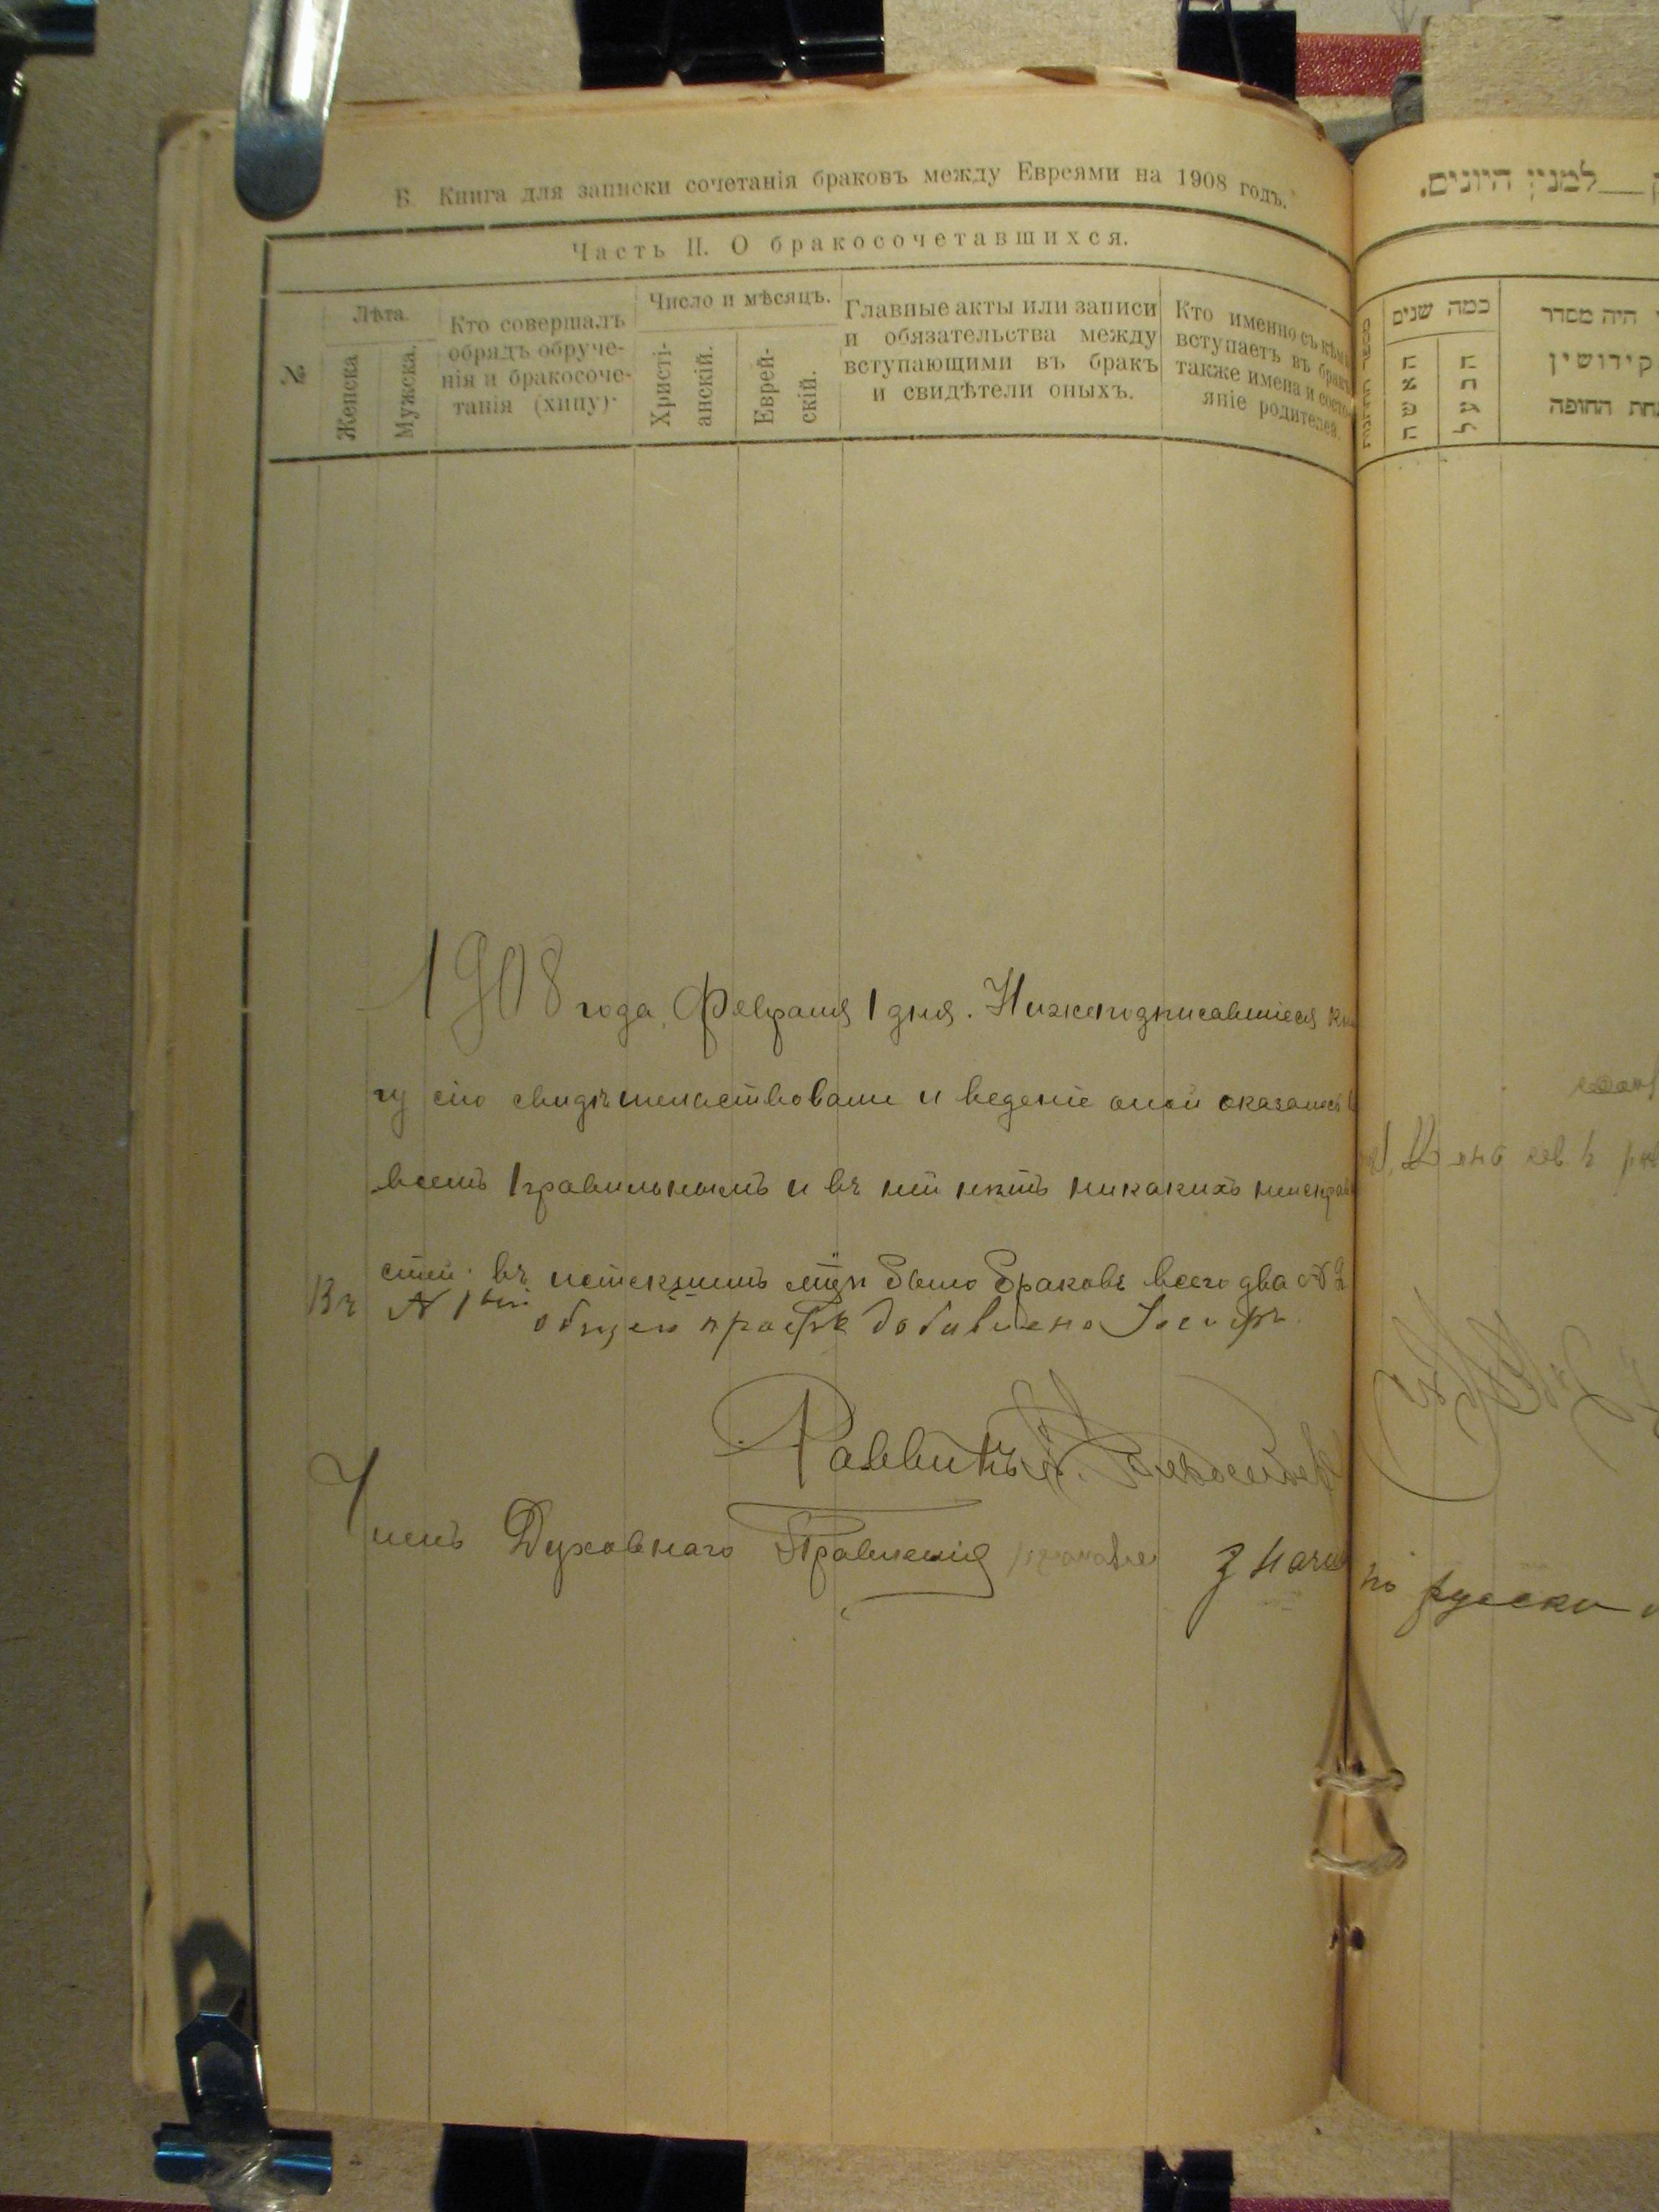 Б. Книга для записки сочетанія браковъ между Евреями на 1908 годъ.
Часть II. О бракосочетавшихся.
№
Лѣта.
Женска
Мужска.
Кто совершалъ
обрядъ обруче-
нія и бракосоче-
танія (хипу)·
Число и мѣсяцъ.
Христі-
анскій.
Еврей-
скій.
Главные акты или записи
и обязательства между
вступающими въ бракъ
и свидѣтели оныхъ.
Кто именно съ кѣмъ
вступаетъ въ бракъ
также имена и состо-
яніе родителей.
1908 года Февраля 1 дня. Нижеподписавшіеся кни
гу сію свидѣтельствовали и веденіе оной оказалось
всемъ правильнымъ и въ ней нѣтъ никакихъ неисправ
стей. въ истекшемъ было браковъ всего два № 2
Въ № 1
добавлено
Раввинъ
Членъ Духовнаго Правленія
по русски
למנין היונים.
כמה שנים
האשה
הגל
היה מסדר
קידושין
החופה